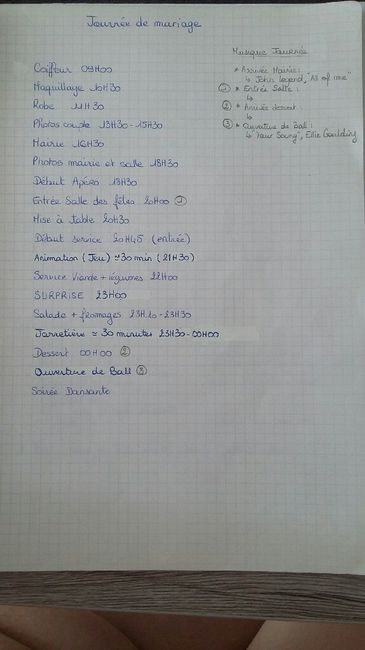 Journée de mariage
Coiffeur 09H00
Maquillage 10H30
Robe 11H30
Photos couple 13H30-15H30
Mairie 16H30
Photos mairie et salle 18H30
Début Apéro 19H30
Entrée Salle des fêtes 20H00 ①
Mise à table 20H30
Début service 20H45 (entrée)
Animation (Jeu) ≈30 min (21H30)
Service Viande + légumes 22H00
SURPRISE 23H00
Salade + fromages 23H10-23H30
Jarretière ≈ 30 minutes 23H30-00H00
Dessert 00H00 ②
Ouverture de Ball ③
Soirée Dansante
Musique Journée
* Arrivée Mairie:
↳ John Legend, "All of me"
① * Entrée Salle:
↳
② * Arrivée dessert:
↳
③ * Ouverture de Ball:
↳ "Your Song", Ellie Goulding